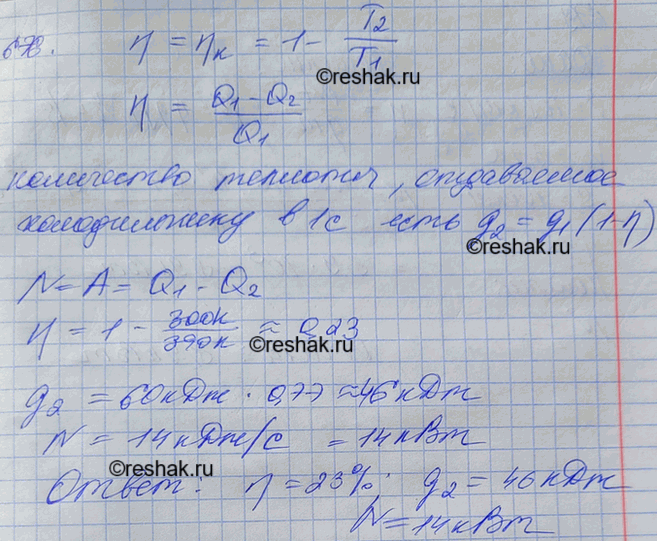 678. η = ηк = 1 - T2/T1
©reshak.ru
η = (Q1 - Q2)/Q1
количество теплоты, отдаваемое
холодильнику в 1с есть g2 = g1(1-η)
©reshak.ru
N = A = Q1 - Q2
η = 1 - 300К/390К ≈ 0,23
©reshak.ru
g2 = 60кДж · 0,77 ≈ 46кДж
N = 14кДж/с = 14кВт
©reshak.ru
Ответ: η = 23%; g2 = 46кДж
N = 14кВт